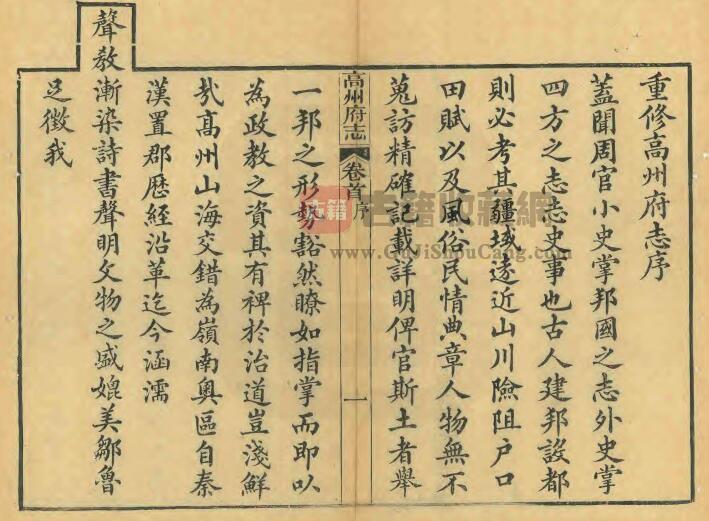 重修高州府志序
蓋聞周官小史掌邦國之志外史掌
四方之志志史事也古人建邦設都
則必考其疆域遂近山川險阻户口
田賦以及風俗民情典章人物無不
蒐訪精確記載詳明俾官斯土者舉
高州府志
卷首
序
一
一邦之形勢豁然瞭如指掌而即以
為政教之資其有裨於治道豈淺鮮
㢤高州山海交錯為嶺南奥區自秦
漢置郡歷經沿革迄今涵濡
聲教漸染詩書聲明文物之盛媲美鄒魯
足徵我
古籍
古籍收藏網
www.GuJiShouCang.com